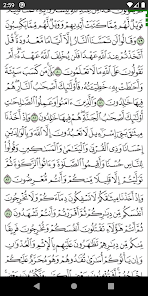 2:59
فَوَيْلٌ لَّهُم مِّمَّا كَتَبَتْ أَيْدِيهِمْ وَوَيْلٌ لَّهُم مِّمَّا يَكْسِبُونَ
وَقَالُوا لَن تَمَسَّنَا النَّارُ إِلَّا أَيَّامًا مَّعْدُودَةً قُلْ
أَتَّخَذْتُمْ عِندَ اللَّهِ عَهْدًا فَلَن يُخْلِفَ اللَّهُ عَهْدَهُ أَمْ
تَقُولُونَ عَلَى اللَّهِ مَا لَا تَعْلَمُونَ بَلَىٰ مَن كَسَبَ سَيِّئَةً
وَأَحَاطَتْ بِهِ خَطِيئَتُهُ فَأُولَٰئِكَ أَصْحَابُ النَّارِ هُمْ
فِيهَا خَالِدُونَ وَالَّذِينَ آمَنُوا وَعَمِلُوا الصَّالِحَاتِ
أُولَٰئِكَ أَصْحَابُ الْجَنَّةِ هُمْ فِيهَا خَالِدُونَ وَإِذْ
أَخَذْنَا مِيثَاقَ بَنِي إِسْرَائِيلَ لَا تَعْبُدُونَ إِلَّا اللَّهَ
وَبِالْوَالِدَيْنِ إِحْسَانًا وَذِي الْقُرْبَىٰ وَالْيَتَامَىٰ وَالْمَسَاكِينِ
وَقُولُوا لِلنَّاسِ حُسْنًا وَأَقِيمُوا الصَّلَاةَ وَآتُوا الزَّكَاةَ
ثُمَّ تَوَلَّيْتُمْ إِلَّا قَلِيلًا مِّنكُمْ وَأَنتُم مُّعْرِضُونَ
وَإِذْ أَخَذْنَا مِيثَاقَكُمْ لَا تَسْفِكُونَ دِمَاءَكُمْ وَلَا تُخْرِجُونَ
أَنفُسَكُم مِّن دِيَارِكُمْ ثُمَّ أَقْرَرْتُمْ وَأَنتُمْ تَشْهَدُونَ
ثُمَّ أَنتُمْ هَٰؤُلَاءِ تَقْتُلُونَ أَنفُسَكُمْ وَتُخْرِجُونَ فَرِيقًا
مِّنكُم مِّن دِيَارِهِمْ تَظَاهَرُونَ عَلَيْهِم بِالْإِثْمِ وَالْعُدْوَانِ